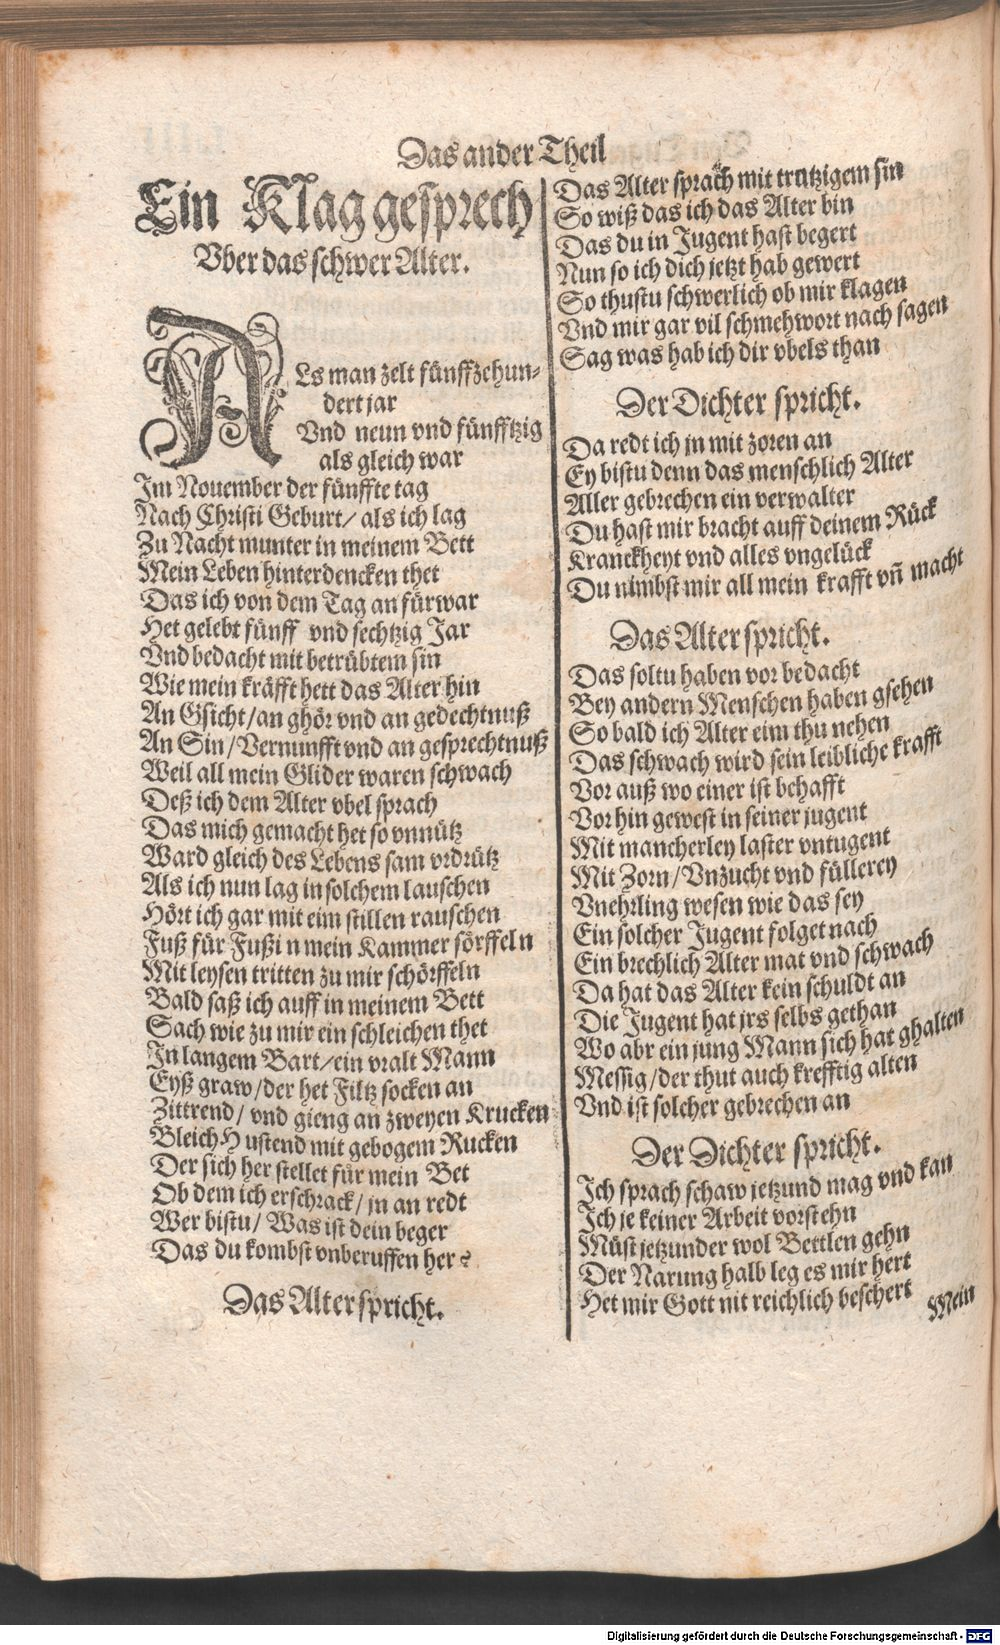 Das ander Theil
Ein Klag gesprech
Vber das schwer Alter.
ALs man zelt fünffzehun-
dert jar
Vnd neun vnd fünfftzig
als gleich war
Im Nouember der fünffte tag
Nach Christi Geburt/ als ich lag
Zu Nacht munter in meinem Bett
Mein Leben hinterdencken thet
Das ich von dem Tag an fürwar
Het gelebt fünff vnd sechtzig Jar
Vnd bedacht mit betrübtem sin
Wie mein kräfft hett das Alter hin
An Gsicht/an ghör vnd an gedechtnuß
An Sin/Vernunfft vnd an gesprechtnuß
Weil all mein Glider waren schwach
Deß ich dem Alter vbel sprach
Das mich gemacht het so vnnütz
Ward gleich des Lebens sam vrdrütz
Als ich nun lag in solchem lauschen
Hört ich gar mit eim stillen rauschen
Fuß für Fuß i n mein Kammer sörffeln
Mit leysen tritten zu mir schörffeln
Bald saß ich auff in meinem Bett
Sach wie zu mir ein schleichen thet
In langem Bart/ein vralt Mann
Eyß graw/der het Filtz socken an
Zittrend/ vnd gieng an zweyen Krucken
Bleich Hustend mit gebogem Rucken
Der sich her stellet für mein Bet
Ob dem ich erschrack/ jn an redt
Wer bistu/ Was ist dein beger
Das du kombst vnberuffen her?
Das Alter spricht.
Das Alter sprach mit trutzigem sin
So wiß das ich das Alter bin
Das du in Jugent hast begert
Nun so ich dich jetzt hab gewert
So thustu schwerlich ob mir klagen
Vnd mir gar vil schmehwort nach sagen
Sag was hab ich dir vbels than
Der Dichter spricht.
Da redt ich jn mit zoren an
Ey bistu denn das menschlich Alter
Aller gebrechen ein verwalter
Du hast mir bracht auff deinem Rück
Kranckheyt vnd alles vngelück
Du nimbst mir all mein krafft vñ macht
Das Alter spricht.
Das soltu haben vor bedacht
Bey andern Menschen haben gsehen
So bald ich Alter eim thu nehen
Das schwach wird sein leibliche krafft
Vor auß wo einer ist behafft
Vorhin gewest in seiner jugent
Mit mancherley laster vntugent
Mit Zorn/Vnzucht vnd füllerey
Vnehrling wesen wie das sey
Ein solcher Jugent folget nach
Ein brechlich Alter mat vnd schwach
Da hat das Alter kein schuldt an
Die Jugent hat jrs selbs gethan
Wo abr ein jung Mann sich hat ghalten
Messig/der thut auch krefftig alten
Vnd ist solcher gebrechen an
Der Dichter spricht.
Ich sprach schaw jetzund mag vnd kan
Ich je keiner Arbeit vorstehn
Müst jetzunder wol Bettlen gehn
Der Narung halb leg es mir hert
Het mir Gott nit reichlich beschert
Mein
Digitalisierung gefördert durch die Deutsche Forschungsgemeinschaft - DFG